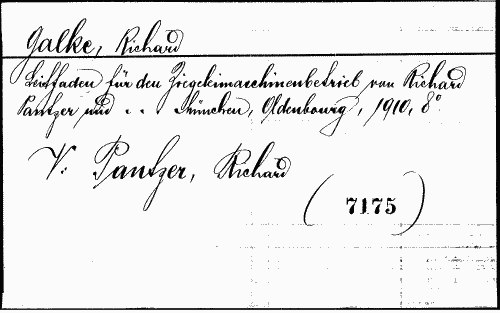 Galke, Richard
Leitfaden für den Ziegeleimaschinenbetrieb von Richard
Pantzer und . . . München, Oldenbourg, 1910, 8°.
V. Pantzer, Richard
(7175)